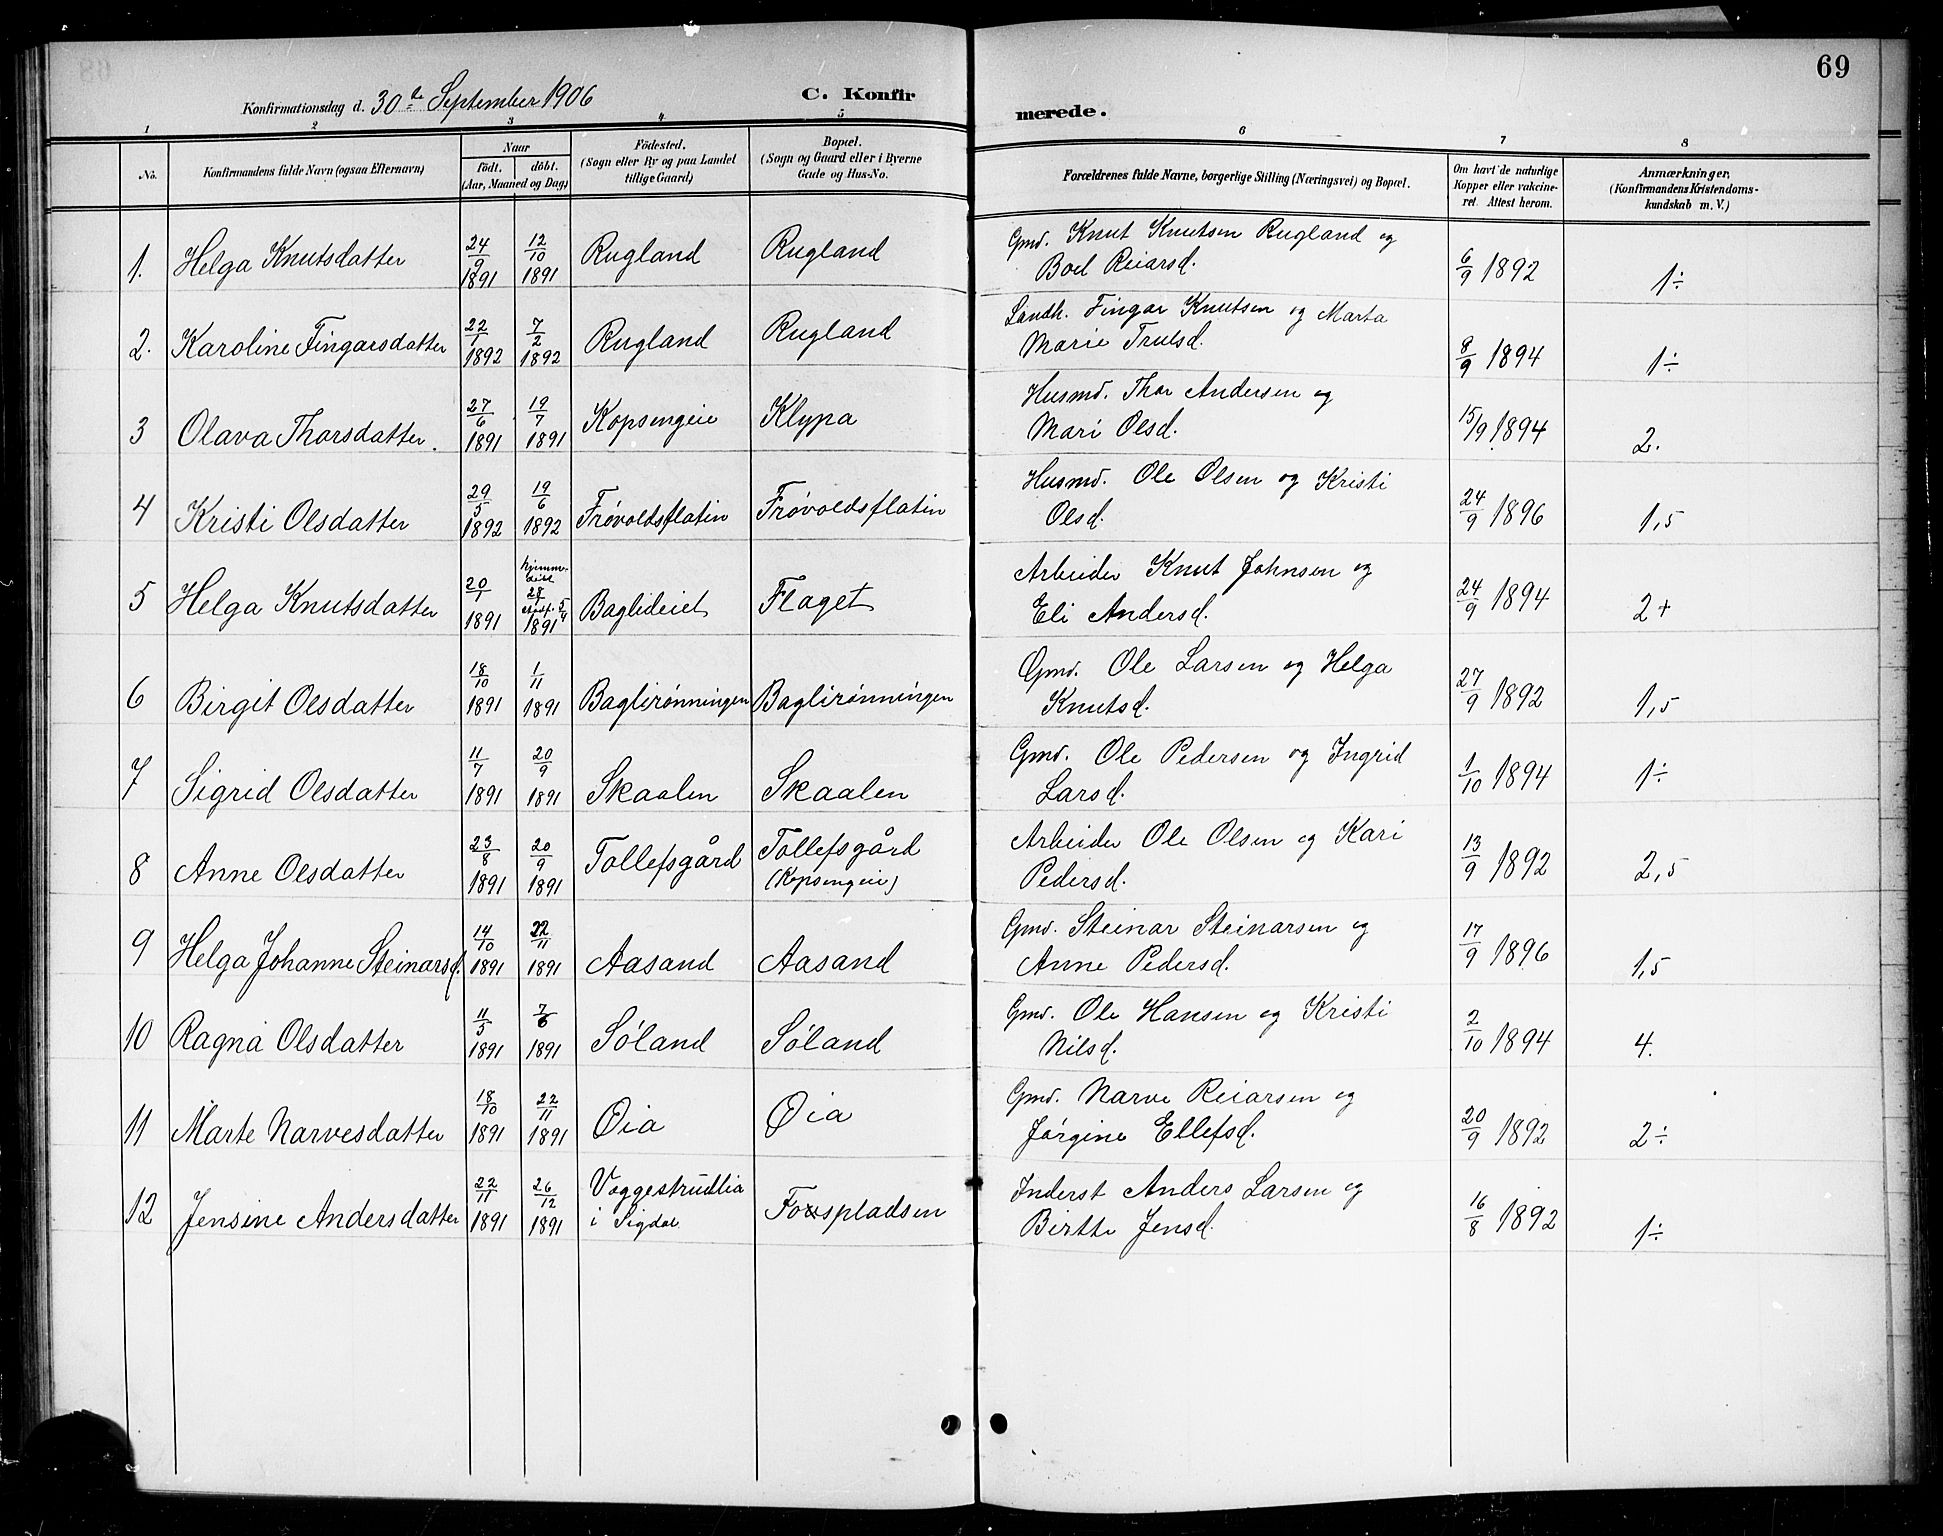 69
Konfirmationsdag d. 30te September 1906
C. Konfirmerede.
1 2 3 4 5 6 7 8
No.
Konfirmandens fulde Navn (ogsaa Efternavn)
Naar
födt. döbt.
(Aar, Maaned og Dag)
Födested.
(Sogn eller By og paa Landet
tillige Gaard)
Bopæl.
(Sogn og Gaard eller i Byerne
Gade og Hus-No.
Forældrenes fulde Navne, borgerlige Stilling (Næringsvei) og Bopæl.
Om havt de naturlige
Kopper eller vakcine-
ret. Attest herom.
Anmærkninger,
(Konfirmandens Kristendoms-
kundskab m. V.)
1. Helga Knutsdatter 24/9 1891 12/10 1891 Rugland Rugland Gmd. Knut Knutsen Rugland og
Boel Reiarsd. 6/9 1892 1÷
2. Karoline Fingarsdatter 22/1 1892 7/2 1892 Rugland Rugland Landh. Fingar Knutsen og Marta
Marie Trulsd. 8/9 1894 1÷
3 Olava Thorsdatter. 27/6 1891 19/7 1891 Kopsengeie Klypa Husmd. Thor Andersen og
Mari Olsd. 15/9 1894 2.
4 Kristi Olsdatter 29/5 1892 19/6 1892 Frøvoldsflatin Frøvoldsflatin Husmd. Ole Olsen og Kristi
Olsd. 24/9 1896 1,5
5 Helga Knutsdatter 20/1 1891 hjemme-
28/1 5/4 1891 Baglideiet Flaget Arbeider Knut Johnsen og
Eli Andersd. 24/9 1894 2+
6 Birgit Olsdatter 18/10 1891 1/11 1891 Baglirønningen Baglirønningen Gmd. Ole Larsen og Helga
Knutsd. 27/9 1892 1,5
7 Sigrid Olsdatter 11/7 1891 20/9 1891 Skaalen Skaalen Gmd. Ole Pedersen og Ingrid
Larsd. 1/10 1894 1÷
8 Anne Olsdatter 23/8 1891 20/9 1891 Tollefsgård Tollefsgård
(Kopsengeie) Arbeider Ole Olsen og Kari
Pedersd. 13/9 1892 2,5
9 Helga Johanne Steinarsd. 14/10 1891 22/11 1891 Aasand Aasand Gmd. Steinar Steinarsen og
Anne Pedersd. 17/9 1896 1,5
10 Ragna Olsdatter 11/5 1891 7/6 1891 Søland Søland Gmd. Ole Hansen og Kristi
Nilsd. 2/10 1894 4.
11 Marte Narvesdatter 18/10 1891 22/11 1891 Øia Øia Gmd. Narve Reiarsen og
Jørgine Ellefsd. 20/9 1892 2÷
12 Jensine Andersdatter 22/11 1891 26/12 1891 Vaggestrudlia
i Sigdal Fosspladsen Inderst Anders Larsen og
Birtte Jensd. 16/8 1892 1÷